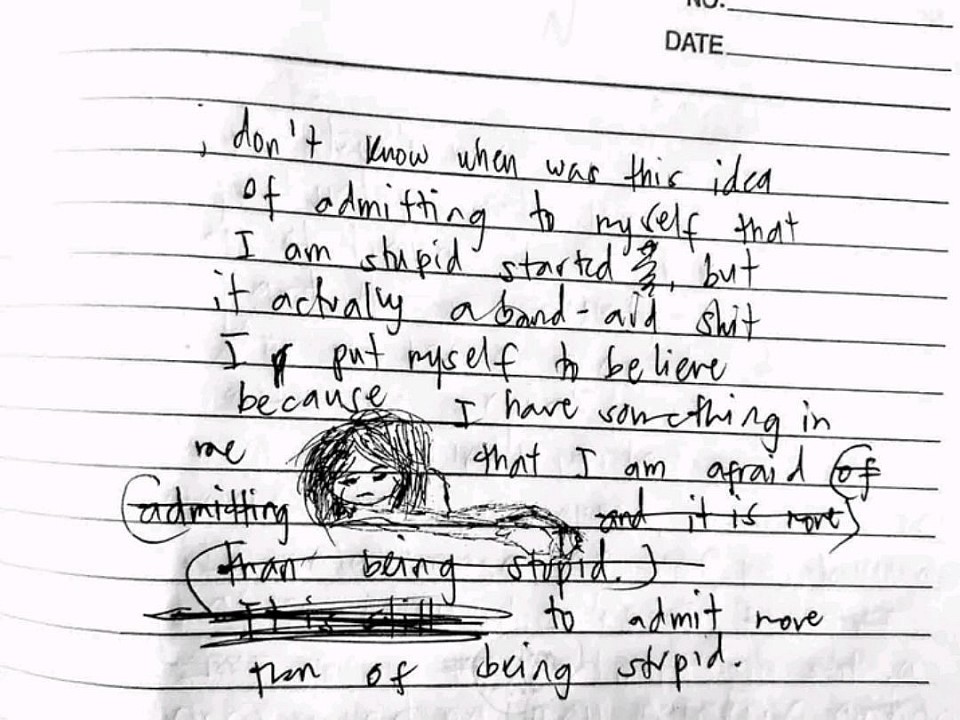 NO.
DATE
i don't know when was this idea
of admitting to myself that
I am stupid started , but
it actually a band-aid shit
I put myself to believe
because I have something in
me that I am afraid of
admitting and it is more
than being stupid.
It is still to admit more
than of being stupid.